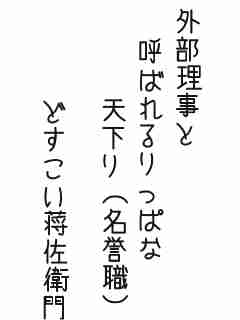 外部理事と
呼ばれるりっぱな
天下り（名誉職）
どすこい蒋佐衛門